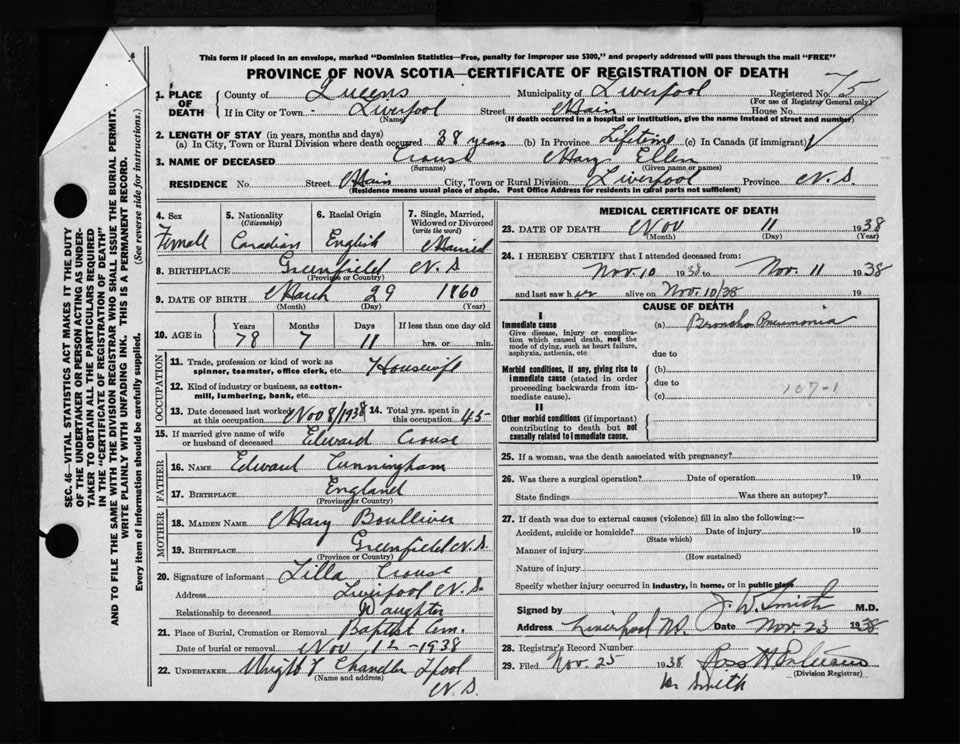 This form if placed in an envelope, marked "Dominion Statistics—Free, penalty for improper use $300," and properly addressed will pass through the mail "FREE"
PROVINCE OF NOVA SCOTIA—CERTIFICATE OF REGISTRATION OF DEATH
1. PLACE OF DEATH
County of Queens Municipality of Liverpool Registered No. 75
(For use of Registrar General only)
If in City or Town Liverpool Street Main House No.
(Name) (If death occurred in a hospital or institution, give the name instead of street and number)
2. LENGTH OF STAY (in years, months and days)
(a) In City, Town or Rural Division where death occurred 38 years (b) In Province Lifetime (c) In Canada (if immigrant)
3. NAME OF DECEASED Crouse Mary Ellen
(Surname) (Given name or names)
RESIDENCE No. Street Main City, Town or Rural Division Liverpool Province N.S.
(Residence means usual place of abode. Post Office Address for residents in rural parts not sufficient)
4. Sex Female
5. Nationality (Citizenship) Canadian
6. Racial Origin English
7. Single, Married, Widowed or Divorced (write the word) Married
8. BIRTHPLACE Greenfield N.S
(Province or Country)
9. DATE OF BIRTH March 29 1860
(Month) (Day) (Year)
10. AGE in Years Months Days If less than one day old
78 7 11 hrs. or min.
OCCUPATION
11. Trade, profession or kind of work as spinner, teamster, office clerk, etc. Housewife
12. Kind of industry or business, as cotton-mill, lumbering, bank, etc.
13. Date deceased last worked at this occupation Nov 8/1938 14. Total yrs. spent in this occupation 45
15. If married give name of wife or husband of deceased Edward Crouse
FATHER
16. NAME Edward Cunningham
17. BIRTHPLACE England
(Province or Country)
MOTHER
18. MAIDEN NAME Mary Boulliver
19. BIRTHPLACE Greenfield N.S.
(Province or Country)
20. Signature of informant Lilla Crouse
Address Liverpool N.S.
Relationship to deceased Daughter
21. Place of Burial, Cremation or Removal Baptist Cem.
Date of burial or removal Nov 12-1938
22. UNDERTAKER Wright & Chandler Lpool
(Name and address) N.S.
MEDICAL CERTIFICATE OF DEATH
23. DATE OF DEATH Nov 11 1938
(Month) (Day) (Year)
24. I HEREBY CERTIFY that I attended deceased from:
Nov. 10 1938 to Nov. 11 1938
and last saw her alive on Nov. 10/38 19
CAUSE OF DEATH
I
Immediate cause
Give disease, injury or complication which caused death, not the mode of dying, such as heart failure, asphyxia, asthenia, etc
(a) Broncho Pneumonia
due to
Morbid conditions, if any, giving rise to immediate cause (stated in order proceeding backwards from immediate cause).
(b)
due to
(c) 107-1
II
Other morbid conditions (if important) contributing to death but not causally related to immediate cause.
25. If a woman, was the death associated with pregnancy?
26. Was there a surgical operation? Date of operation 19
State findings Was there an autopsy?
27. If death was due to external causes (violence) fill in also the following:—
Accident, suicide or homicide? Date of injury 19
(State which)
Manner of injury
(How sustained)
Nature of injury
Specify whether injury occurred in industry, in home, or in public place
Signed by J. W. Smith M.D.
Address Liverpool NS. Date Nov. 23 1938
28. Registrar's Record Number
29. Filed Nov. 25 1938 Ross H
(Division Registrar)
Dr Smith
SEC. 46—VITAL STATISTICS ACT MAKES IT THE DUTY
OF THE UNDERTAKER OR PERSON ACTING AS UNDER-
TAKER TO OBTAIN ALL THE PARTICULARS REQUIRED
IN THE "CERTIFICATE OF REGISTRATION OF DEATH"
AND TO FILE THE SAME WITH THE DIVISION REGISTRAR WHO SHALL ISSUE THE BURIAL PERMIT.
WRITE PLAINLY WITH UNFADING INK. THIS IS A PERMANENT RECORD.
Every item of information should be carefully supplied. (See reverse side for instructions.)